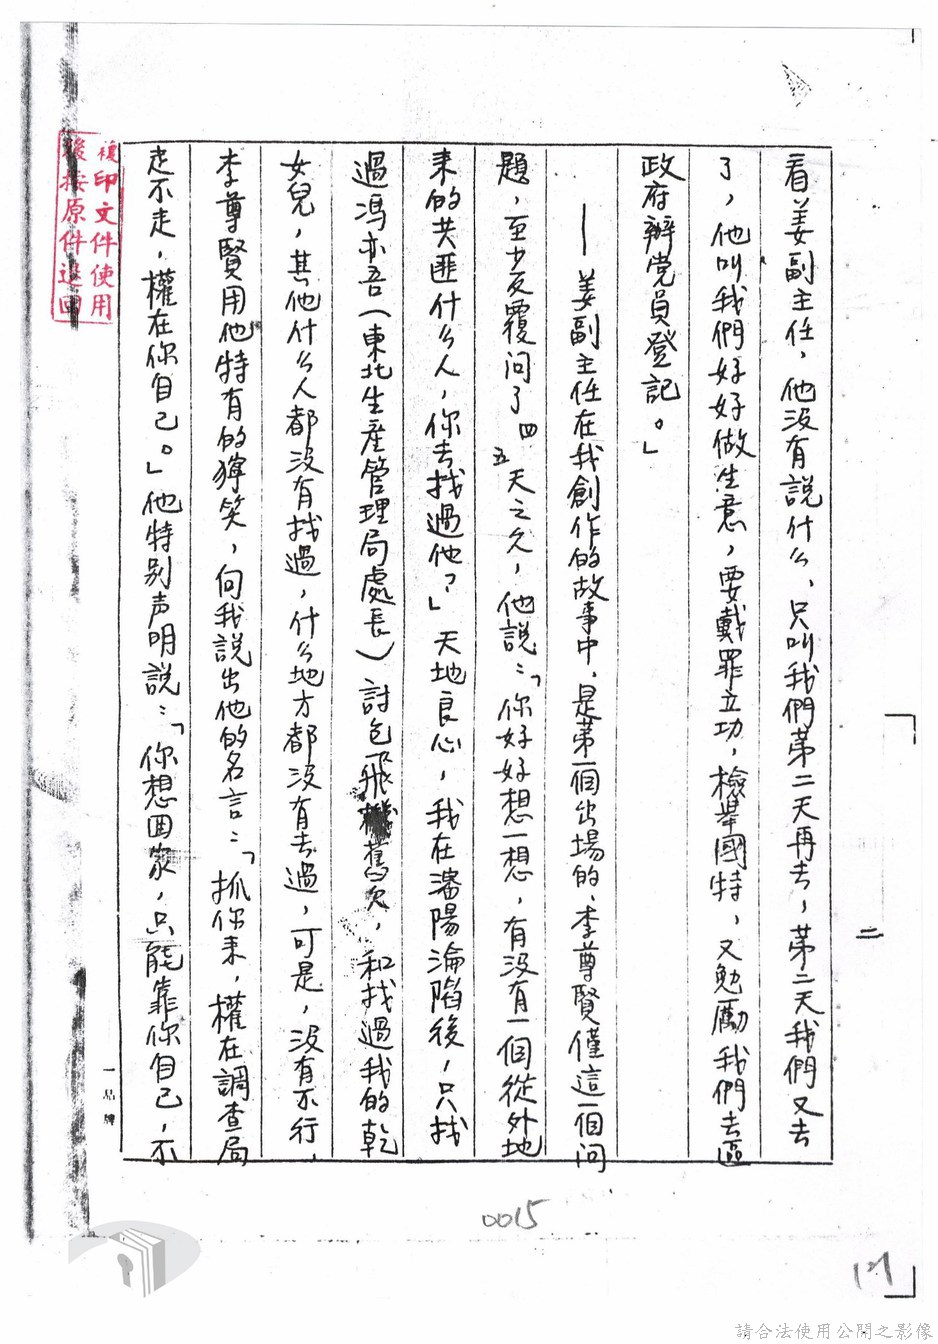 看姜副主任，他没有説什么，只叫我們第二天再去，第二天我們又去
了，他叫我們好好做生意，要戴罪立功，檢舉國特，又勉勵我們去區
政府辦党員登記。」
——姜副主任在我創作的故事中，是第一個出場的，李尊賢僅這一個问
題，至少反覆问了四五天之久，他説：「你好好想一想，有没有一個從外地
来的共匪什么人，你去找過他？」天地良心，我在瀋陽淪陷後，只找
過馮亦吾（東北生産管理局處長）討包飛機舊欠，和找過我的乾
女兒，其他什么人都没有找過，什么地方都没有去過，可是，没有不行，
李尊賢用他特有的獰笑，向我説出他的名言：「抓你来，權在調查局
走不走，權在你自己。」他特别声明説：「你想回家，只能靠你自己，不
二
一品牌
複印文件使用
後按原件退回
0015
請合法使用公開之影像